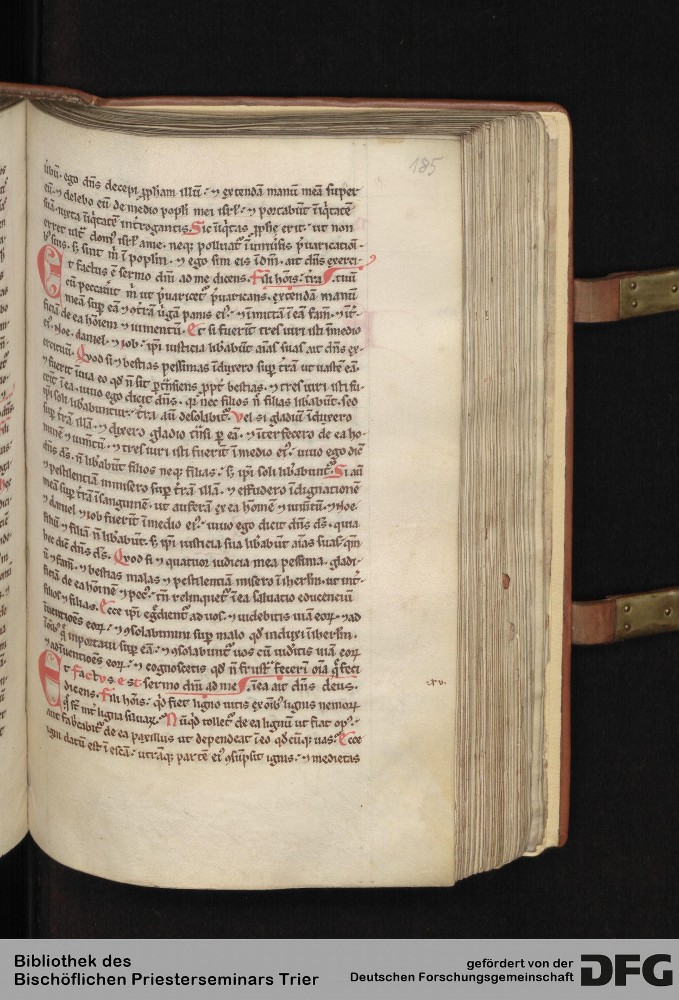 185
ego dñs decepi ꝓpham illũ: ⁊ extendã manũ meã super
eũ. ⁊ delebo eũ de medio popli mei isrl: ⁊ portabũt iniq̃tatẽ
suã. iuxta iniq̃tatẽ int̃rogantis. Sic iniq̃tas ꝓphe erit: ut non
erret ult̃ dom᷒ isrl a me. neq; polluat᷑ in uniũsis p̃uaricationi-
b᷒ suis. s; sint m̃ i poplm. ⁊ ego sim eis i dm̃. ait dñs exerci-
Et factus ẽ sermo dñi ad me dicens. Fili hoĩs: t̃ra tuũ
cũ peccau̾it m̃ ut p̃uaricet᷑ p̃uaricans. extendã manũ
meã sup eã ⁊ ct̃ã uirgã panis ei᷒: ⁊ inmittã i eã famẽ. ⁊ int̃-
ficiã de ea hoĩem ⁊ iumentũ. Et si fuerĩt tres uiri isti i medio
ei᷒. Noe. daniel. ⁊ iob: ip̃i iusticia lib̾abũt aĩas suas ait dñs ex-
ercituũ. Quod si ⁊ bestias pessimas iduxero sup t̃rã ut uastẽ eã.
⁊ fuerit inuia eo qd̾ ñ sit ꝑt̃nsiens ꝓpt̃ bestias. ⁊ tres uiri isti fu-
erĩt i ea. uiuo ego dicit dñs. q̾ nec filios ñ filias lib̾abũt. sed
ip̃i soli lib̾abuntur: t̃ra aũ desolabit᷑. Vel si gladiũ iduxero
sup t̃rã illã. ⁊ dixero gladio t̃nsi ꝑ eã. ⁊ int̃erfecero de ea ho-
minẽ ⁊ iumtũ. ⁊ tres uiri isti fuerĩt i medio ei᷒. uiuo ego dic̃
dñs ds̃. ñ lib̾abũt filios neq; filias: s; ip̃i soli lib̾abunt᷑. Si aũ
⁊ pestilentiã inmisero sup t̃rã illã. ⁊ effudero idignationẽ
meã sup t̃rã i sanguinẽ. ut auferã ex ea hoĩnẽ ⁊ iumtũ. ⁊ noe.
⁊ daniel ⁊ iob fuerĩt i medio ei᷒: uiuo ego dicit dñs ds̃. quia
filiũ ⁊ filiã ñ lib̾abũt. s; ip̃i iusticia sua lib̾abũt aĩas suas. qm̃
hec dic̃ dñs ds̃. Quod si ⁊ quatuor iudicia mea pessima. gladi-
ũ ⁊ famẽ. ⁊ bestias malas ⁊ pestilentiã misero i ihers̃lm. ut int̃-
ficiã de ea hoĩnẽ ⁊ pec᷒. tm̃ relinquet᷑ i ea saluatio educentiũ
filios ⁊ filias. Ecce ip̃i eg̃dient᷑ ad uos. ⁊ uidebitis uiã eoꝝ. ⁊ ad
inuentiões eoꝝ: ⁊ ↄsolabimini sup malo qd̾ induxi i ihers̃lm.
i oĩb᷒ q̃ importaui sup eã: ⁊ ↄsolabunt᷑ uos cũ uidĩtis uiã eoꝝ
⁊ adiuentiões eoꝝ: ⁊ cognoscetis qd̾ ñ frustr̃ fecerĩ oĩa q̃ feci
Et factus est sermo dñi ad me i ea. ait dñs deus.
dicens. Fili hoĩs. qd̾ fiet ligno uitis ex oĩb᷒ lignis nemoꝝ
q̃ st̃ int̃ ligna siluaꝝ: Nũqd̾ tollet᷑ de ea lignũ ut fiat op᷒:
aut fab̾cabit᷑ de ea paxillus ut dependeat i eo qd̾cũq; uas: Ecce
igni datũ est i escã: utrãq; partẽ ei᷒ ↄsũpsit ignis: ⁊ medietas
.xv.
Bibliothek des
Bischöflichen Priesterseminars Trier
gefördert von der
Deutschen Forschungsgemeinschaft
DFG